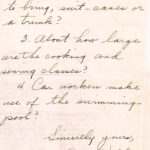 to bring, suit-cases or
a trunk?
3. About how large
are the cooking and
sewing classes?
4 Can workers make
use of the swimming-
pool?
Sincerely yours,